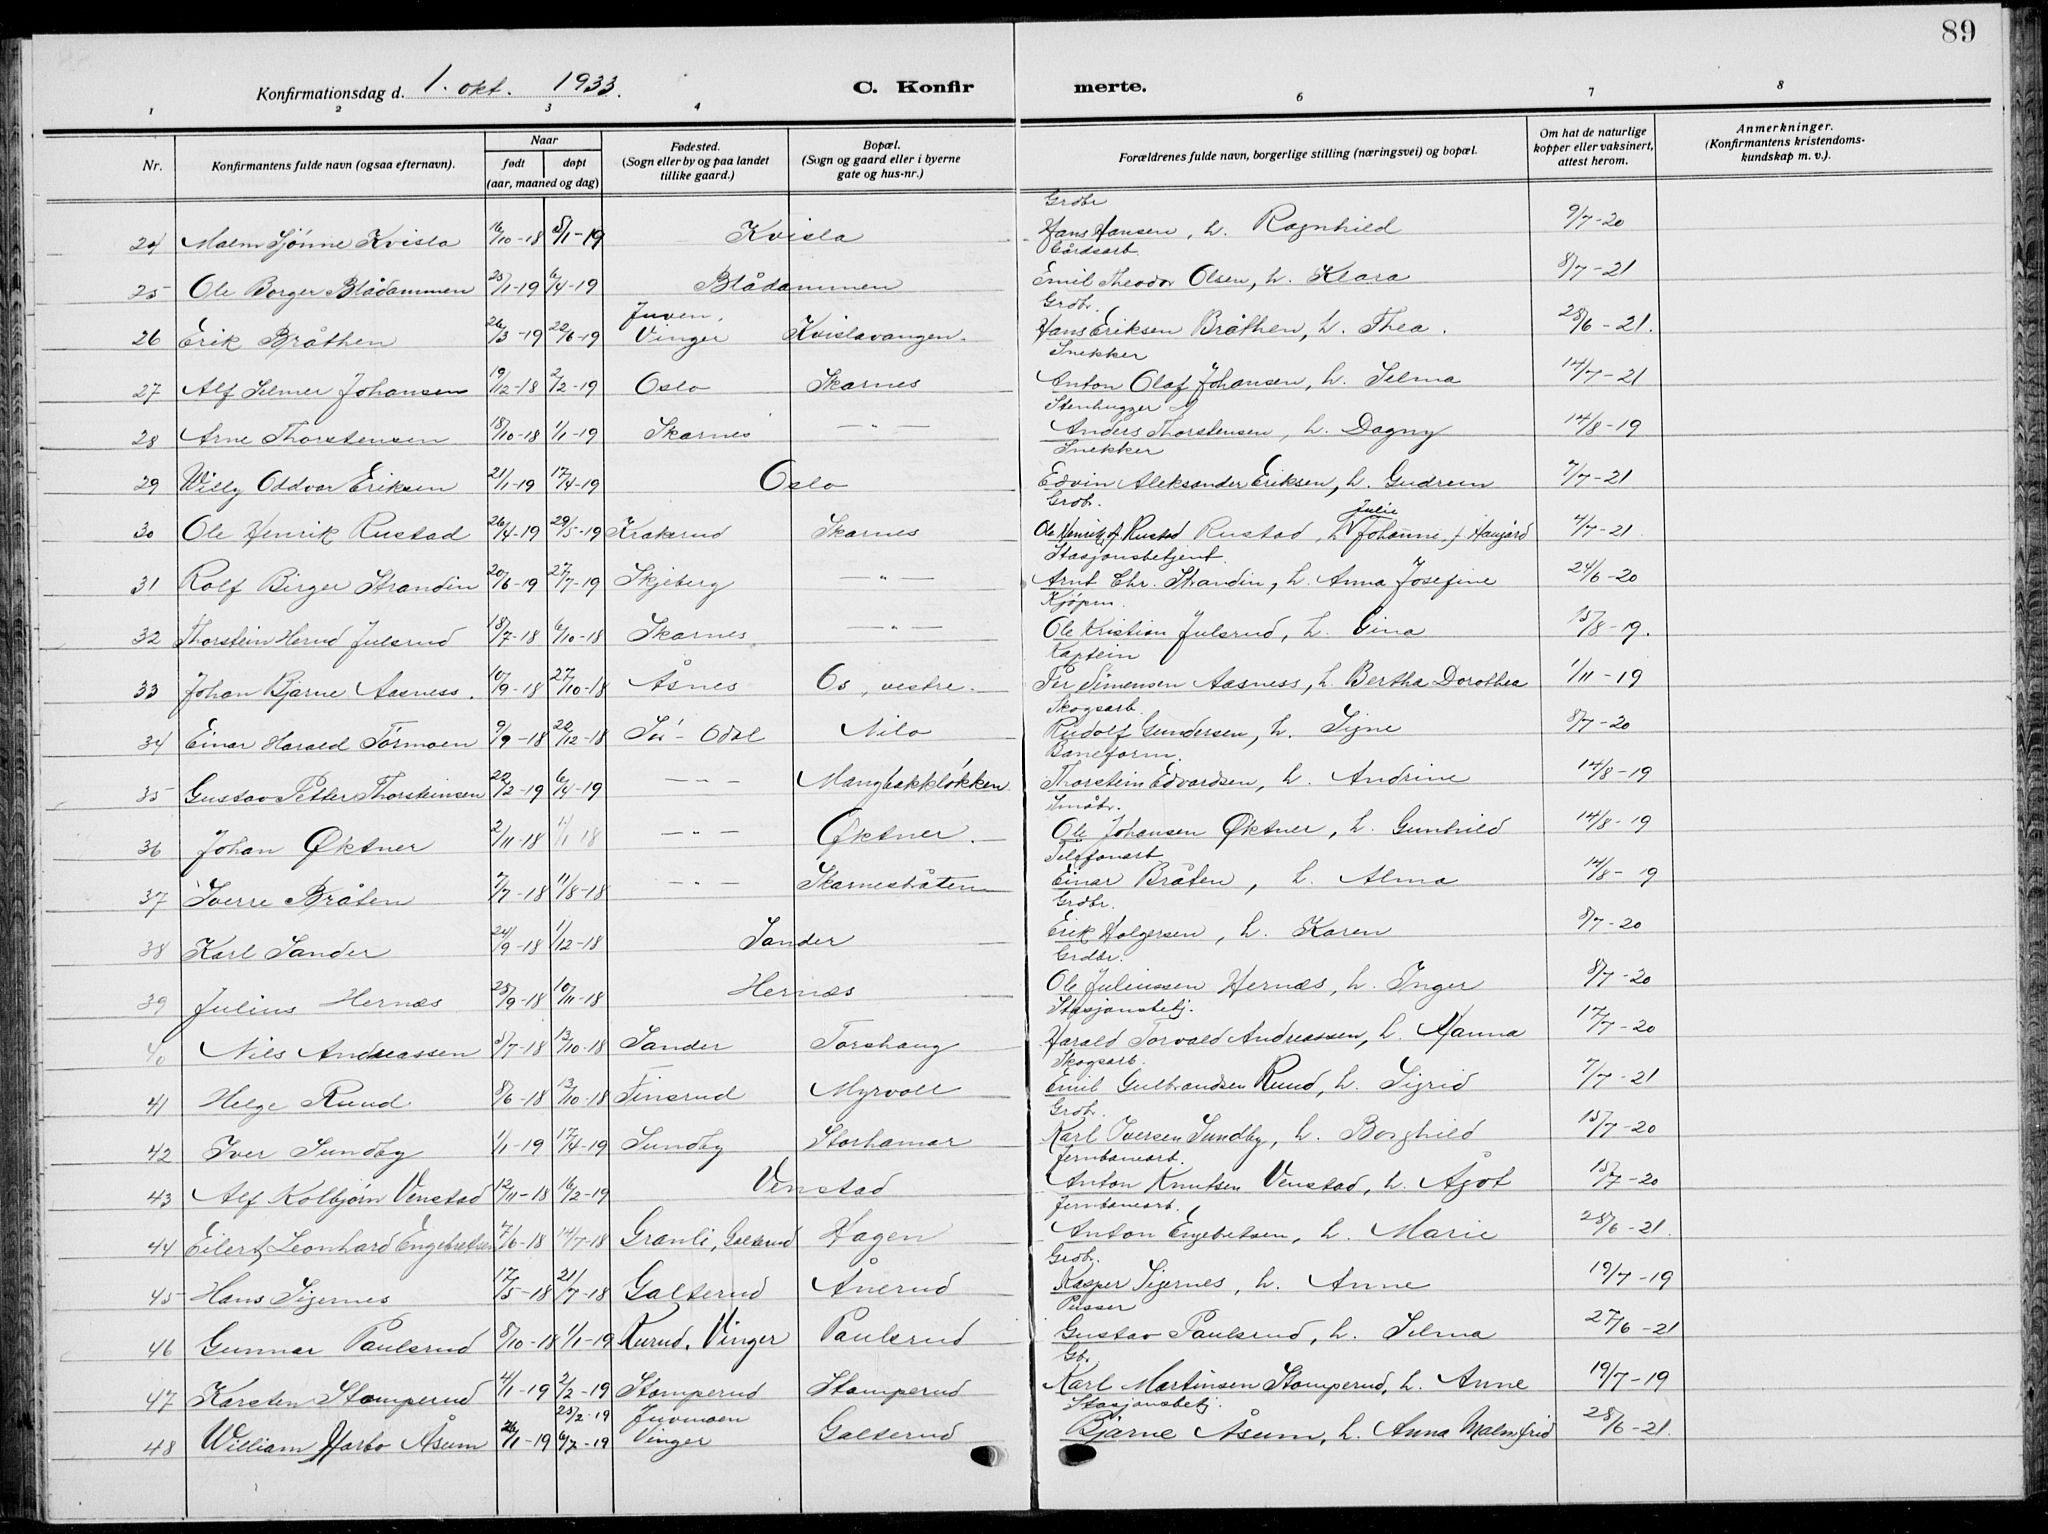 89
Konfirmationsdag d. 1. okt. 1933.
C. Konfirmerte.
1 2 3 4 6 7 8
Nr. Konfirmantens fulde navn (ogsaa efternavn). Naar født døpt (aar, maaned og dag) Fødested. (Sogn eller by og paa landet tillike gaard.) Bopæl. (Sogn og gaard eller i byerne gate og hus-nr.) Forældrenes fulde navn, borgerlige stilling (næringsvei) og bopæl. Om hat de naturlige kopper eller vaksinert, attest herom. Anmerkninger. (Konfirmantens kristendoms-kundskap m. v.).
Grdbr
24 Malm Sjönne Kvisla 16/10-18 5/1-19 Kvisla Hans Hansen, h. Ragnhild 9/7-20
Gårdsarb.
25 Ole Borger Blådammen 25/1-19 6/4-19 Blådammen Emil Theodor Olsen, h. Klara 8/7-21
Grdbr.
26 Erik Bråthen 26/3-19 22/6-19 Juven, Vinger Kvislavangen Hans Eriksen Bråthen, h. Thea. 28/6-21.
Snekker
27 Alf Selmer Johansen 19/12-18 2/2-19 Oslo Skarnes Anton Olaf Johansen, h. Selma 14/7-21
Stenhugger
28 Arne Thorstensen 18/10-18 1/1-19 Skarnes —"— Anders Thorstensen, h. Dagny 14/8-19
Snekker
29 Willy Oddvar Eriksen 21/1-19 17/4-19 Oslo Edvin Aleksander Eriksen, h. Gudrun 7/7-21
Grdb.
30 Ole Henrik Rustad 26/4-19 29/5-19 Krakerud Skarnes Ole Henrik Rustad, h. Julie Johanne f. Haugård 4/7-21
Stasjonsbetjent.
31 Rolf Birger Strandin 20/6-19 27/7-19 Skjeberg —"— Arnt Chr. Strandin, h. Anna Josefine 24/6-20
Kjøpm.
32 Thorstein Herud Julsrud 18/7-18 6/10-18 Skarnes —"— Ole Kristian Julsrud, h. Gina 15/8-19.
Kaptein
33 Johan Bjarne Aasness. 10/9-18 27/10-18 Åsnes Os, vestre Per Simensen Aasness, h. Bertha Dorothea 1/11-19
Skogsarb.
34 Einar Harald Tormoen 9/9-18 22/12-18 Sö-Odal Nilo Rudolf Gundersen, h. Signe 8/7-20
Baneform.
35 Gustav Petter Thorsteinsen 22/2-19 6/4-19 —"— Mangbakkløkken Thorstein Edvardsen, h. Andrine 14/8-19
Småbr.
36 Johan Øktner 2/11-18 1/1 18 —"— Øktner. Ole Johansen Øktner, h. Gunhild 14/8-19
Telefonarb
37 Sverre Bråten 7/7-18 11/8-18 —"— Skarnesbåten Einar Bråten, h. Alma 14/8-19
Grdbr.
38 Karl Sander 24/9-18 1/12-18 Sander Erik Holgersen, h. Karen 8/7-20
Grdbr.
39 Julius Hernæs 25/9-18 10/11-18 Hernæs Ole Juliussen Hernæs, h. Inger 8/7-20
Stasjonsbetj.
40 Nils Andreassen 5/7-18 13/10-18 Sander Torshaug Harald Torvald Andreassen, h. Hanna 17/7-20
Skogsarb.
41 Helge Ruud 8/6-18 13/10-18 Finsrud Myrvoll Emil Gulbrandsen Ruud, h. Sigrid 7/7-21
Grdb.
42 Iver Sundby 1/1-19 17/4-19 Sundby Storhamar Karl Iversen Sundby, h. Borghild 15/7-20
Jernbanearb.
43 Alf Kolbjørn Venstad 12/11-18 16/2-19 Venstad Anton Knutsen Venstad, h. Ågot 15/7-20
Jernbanearb.
44 Eilert Leonhard Engebretsen 7/6-18 14/7-18 Granli, Galterud Hagen Anton Engebretsen, h. Marie 28/6-21.
Grdb.
45 Hans Sigernes 17/5-18 21/7-18 Galterud Ånerud Kasper Sigernes, h. Anne 19/7-19
Pusser
46 Gunnar Paulsrud 8/10-18 1/1-19 Rurud. Vinger Paulsrud Gustav Paulsrud, h. Selma 27/6-21
Gb.
47 Karsten Stomperud 4/1-19 2/2-19 Stomperud Stomperud Karl Martinsen Stomperud, h. Anne 19/7-19
Stasjonsbetj.
48 William Harbo Åsum 26/1-19 25/2-19 6/7-19 Juvmoen Vinger Galterud Bjarne Åsum, h. Anna Malmfrid 28/6-21.